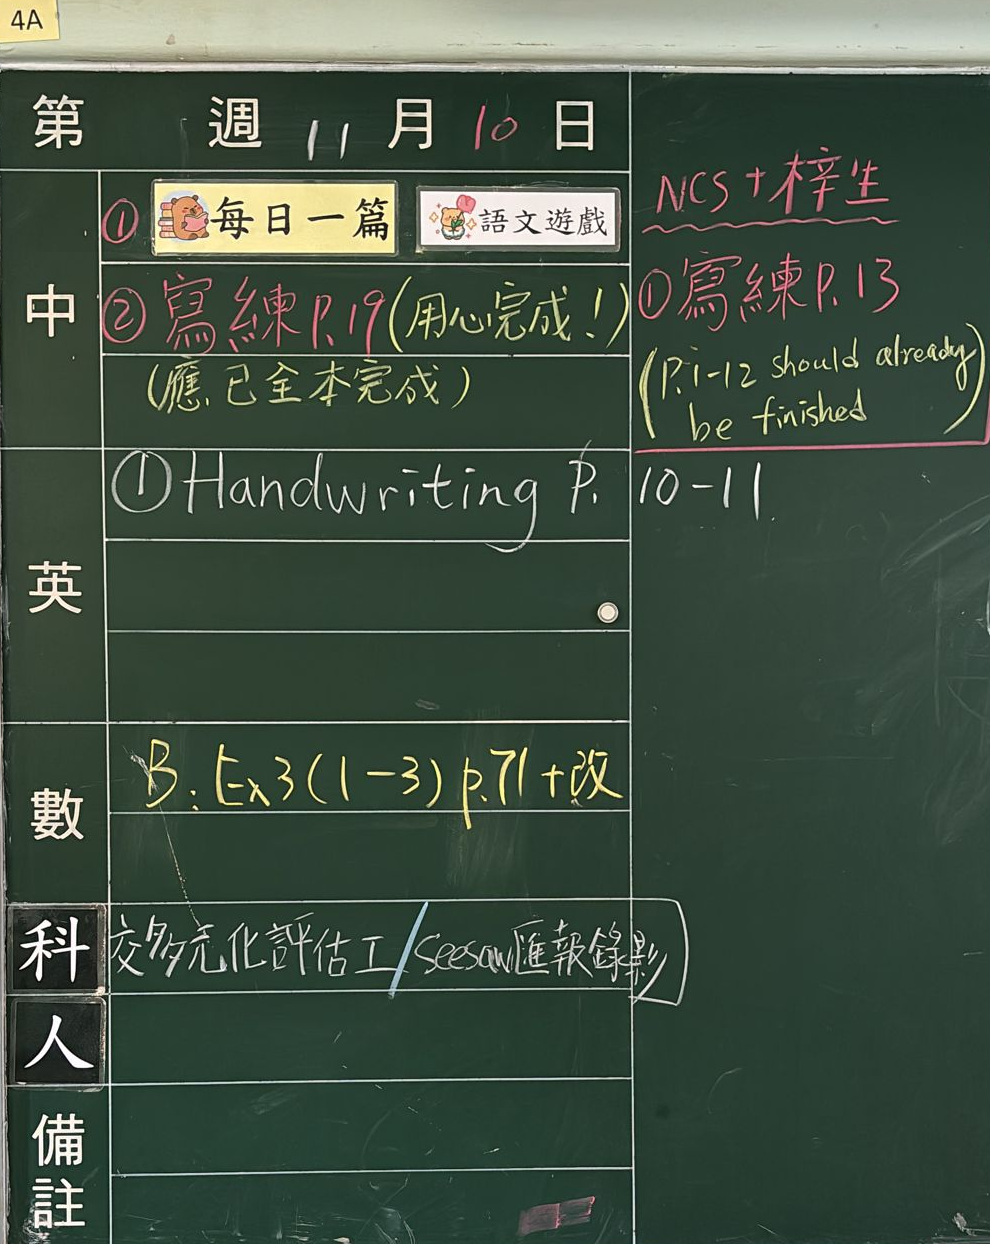 4A
第 週 11 月 10 日
中
① 每日一篇 語文遊戲
② 寫練P.19(用心完成!)
(應已全本完成)
NCS+梓生
① 寫練P.13
(P.1-12 should already
be finished)
英
① Handwriting P. 10-11
數
B: Ex3(1-3) p.71+改
科
交多元化評估工/Seesaw匯報錄影
人
備註